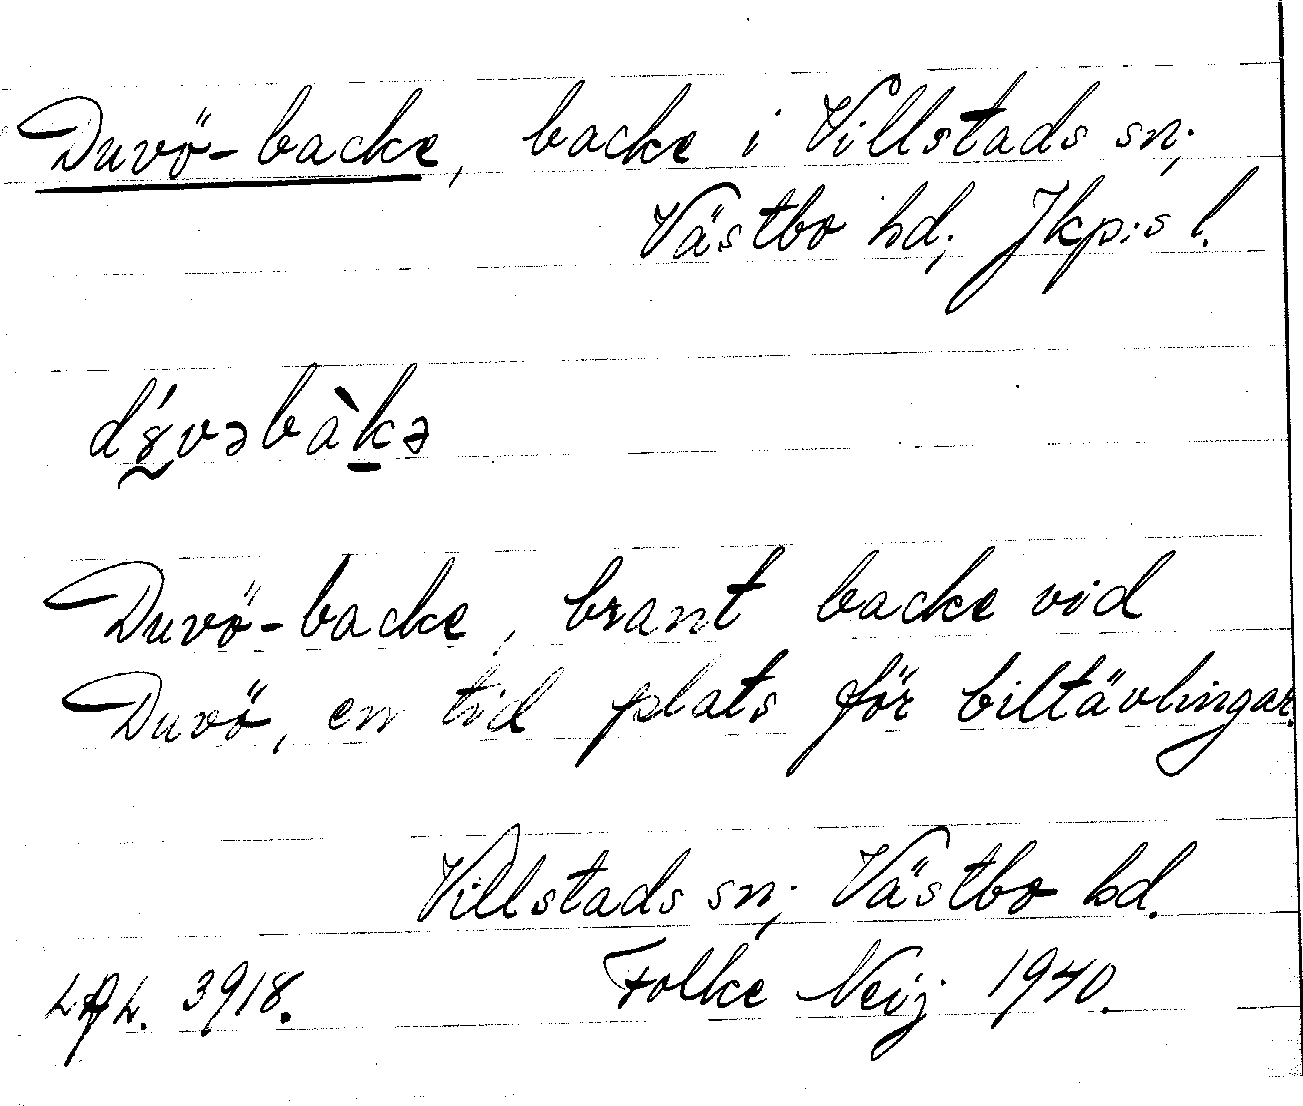 Duvö-backe, backe i Villstads sn;
Västbo hd; Jkp:s l.
Duvö-backe, brant backe vid
Duvö, en tid plats för biltävlingar.
Villstads sn; Västbo hd.
3918. Folke Neij 1940.